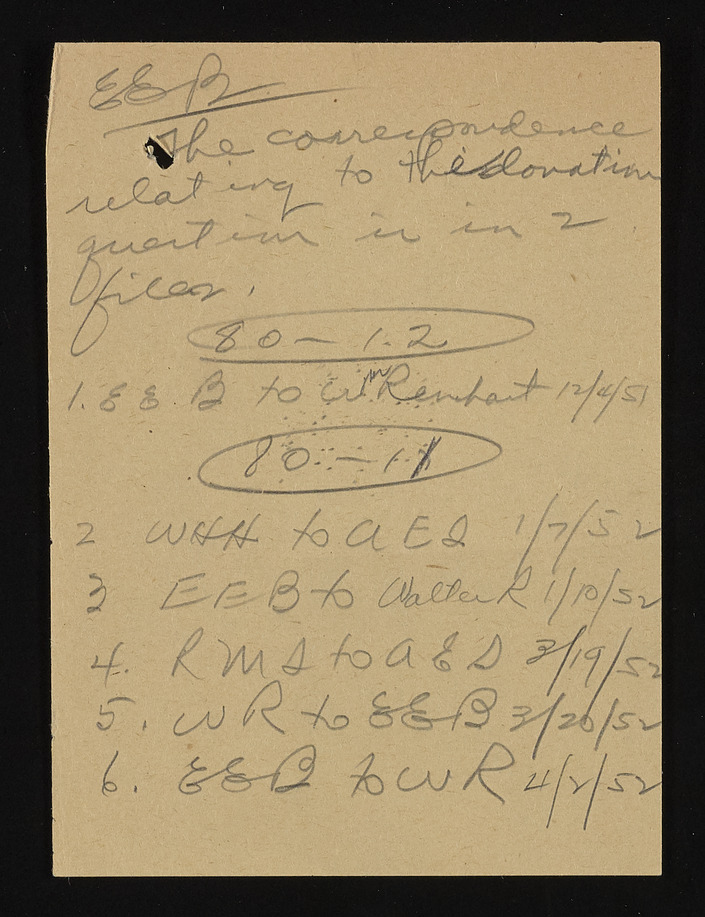 EEB
The correspondence
relating to this donation
question is in 2
files.
80-1.2
1. EEB to Wm Renhart 12/4/51
80-1.1
2 WHH to AES 1/7/52
3 EEB to Walter R 1/10/52
4. RMS to AES 3/19/52
5. WR to EEB 3/20/52
6. EEB to WR 4/2/52